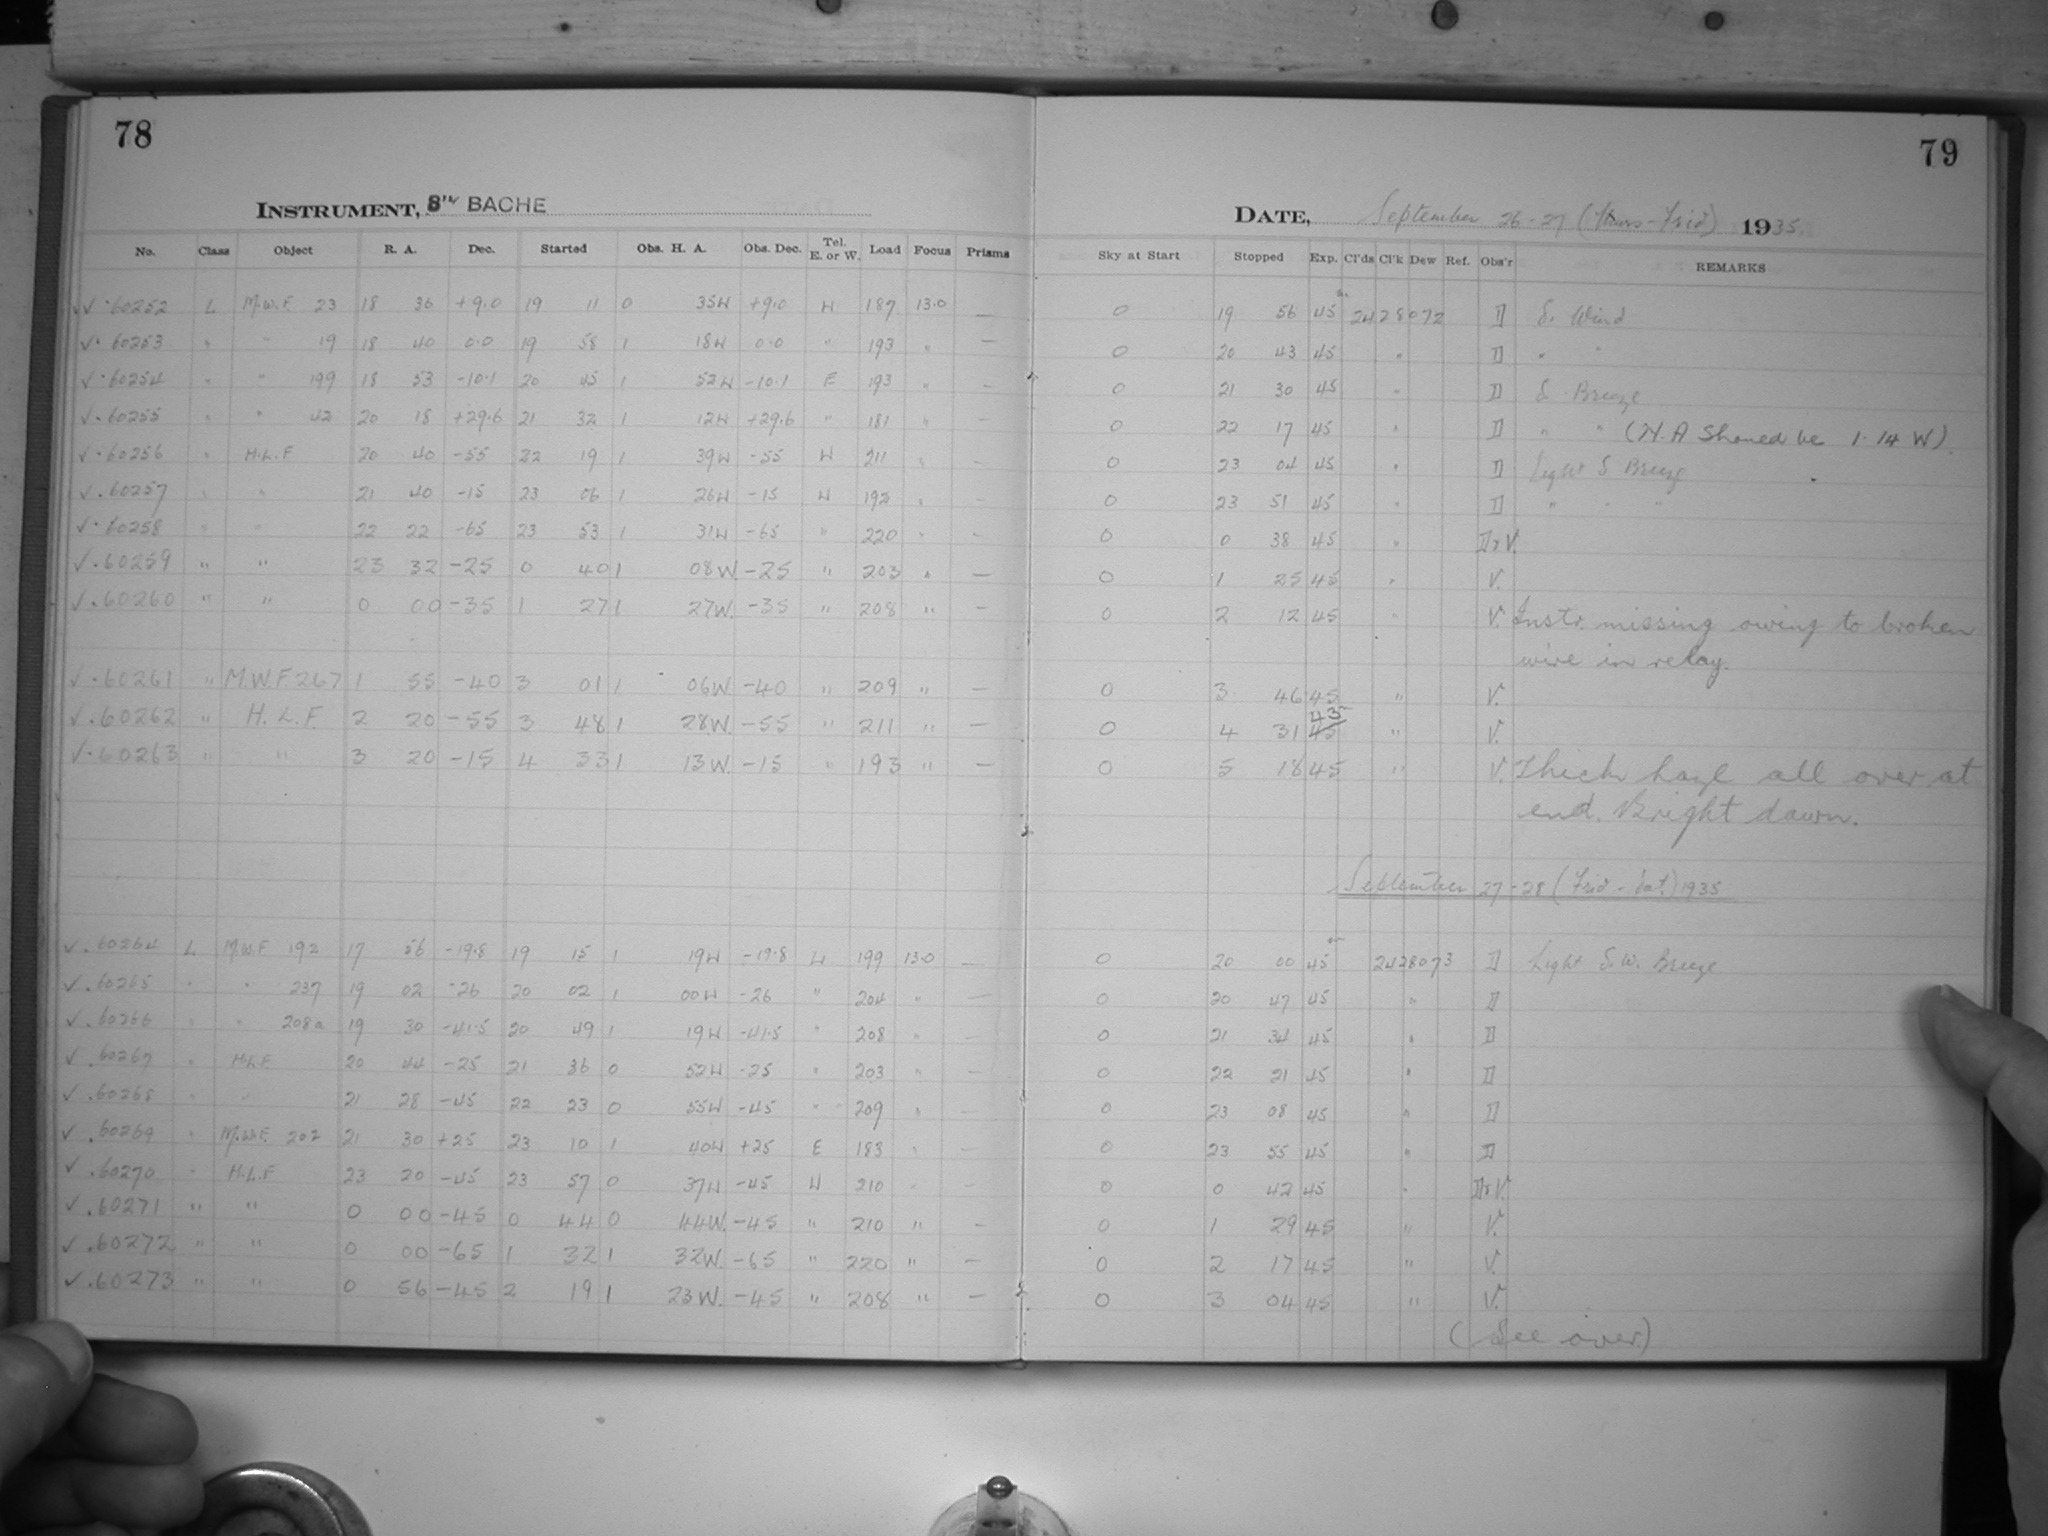 78
79
INSTRUMENT, 8 in BACHE
DATE, September 26-27 (Thurs-Frid) 1935.
No. Class Object R. A. Dec. Started Obs. H. A. Obs. Dec. Tel. E. or W. Load Focus Prisms Sky at Start Stopped Exp. Cl'ds Cl'k Dew Ref. Obs'r REMARKS
✓ ·60252 L M.W.F. 23 18 36 +9.0 19 11 0 35W +9.0 W 187 13.0 — 0 19 56 45 2428072 D S. Wind
✓ ·60253 " " 19 18 40 0.0 19 58 1 18W 0.0 " 193 " — 0 20 43 45 " D " "
✓ ·60254 " " 199 18 53 -10.1 20 45 1 52W -10.1 E 193 " — 0 21 30 45 " D S. Breeze
✓ ·60255 " " 42 20 18 +29.6 21 32 1 12W +29.6 " 181 " — 0 22 17 45 " D " " (H.A Should be 1.14 W).
✓ ·60256 " H.L.F 20 40 -55 22 19 1 39W -55 W 211 " — 0 23 04 45 " D Light S Breeze
✓ .60257 " " 21 40 -15 23 06 1 26W -15 W 192 " — 0 23 51 45 " D " " "
✓ ·60258 " " 22 22 -65 23 53 1 31W -65 " 220 " — 0 0 38 45 " D & V.
✓ .60259 " " 23 32 -25 0 40 1 08W -25 " 203 " — 0 1 25 45 " V.
✓ .60260 " " 0 00 -35 1 27 1 27W. -35 " 208 " — 0 2 12 45 " V. Instr. missing owing to broken
wire in relay.
✓ ·60261 " M.W.F. 267 1 55 -40 3 01 1 06W -40 " 209 " — 0 3 46 45 " V.
✓ .60262 " H. L. F. 2 20 -55 3 48 1 28W. -55 " 211 " — 0 4 31 45 43 " V.
✓ ·60263 " " 3 20 -15 4 33 1 13W. -15 " 193 " — 0 5 18 45 " V. Thick haze all over at
end. Bright dawn.
September 27-28 (Frid-Sat.) 1935
✓ .60264 L M.W.F. 192 17 56 -19.8 19 15 1 19W -19.8 W 199 13.0 — 0 20 00 45 2428073 D Light S.W. Breeze
✓ .60265 " " 237 19 02 -26 20 02 1 00W -26 " 204 " — 0 20 47 45 " D
✓ .60266 " " 208a 19 30 -41.5 20 49 1 19W -41.5 " 208 " — 0 21 34 45 " D
✓ .60267 " H.L.F. 20 44 -25 21 36 0 52W -25 " 203 " — 0 22 21 45 " D
✓ .60268 " " 21 28 -45 22 23 0 55W -45 " 209 " — 0 23 08 45 " D
✓ .60269 " M.W.F. 202 21 30 +25 23 10 1 40W +25 E 183 " — 0 23 55 45 " D
✓ .60270 " H.L.F 23 20 -45 23 57 0 37W -45 W 210 " — 0 0 42 45 " D & V.
✓ .60271 " " 0 00 -45 0 44 0 44W. -45 " 210 " — 0 1 29 45 " V.
✓ .60272 " " 0 00 -65 1 32 1 32W. -65 " 220 " — 0 2 17 45 " V.
✓ .60273 " " 0 56 -45 2 19 1 23W. -45 " 208 " — 0 3 04 45 " V.
(See over.)